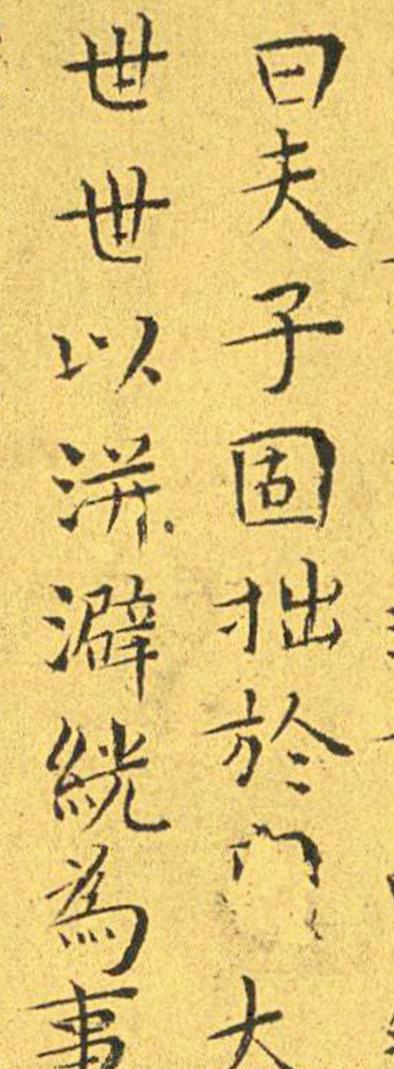 曰夫子固拙於大
世世以洴澼絖為事